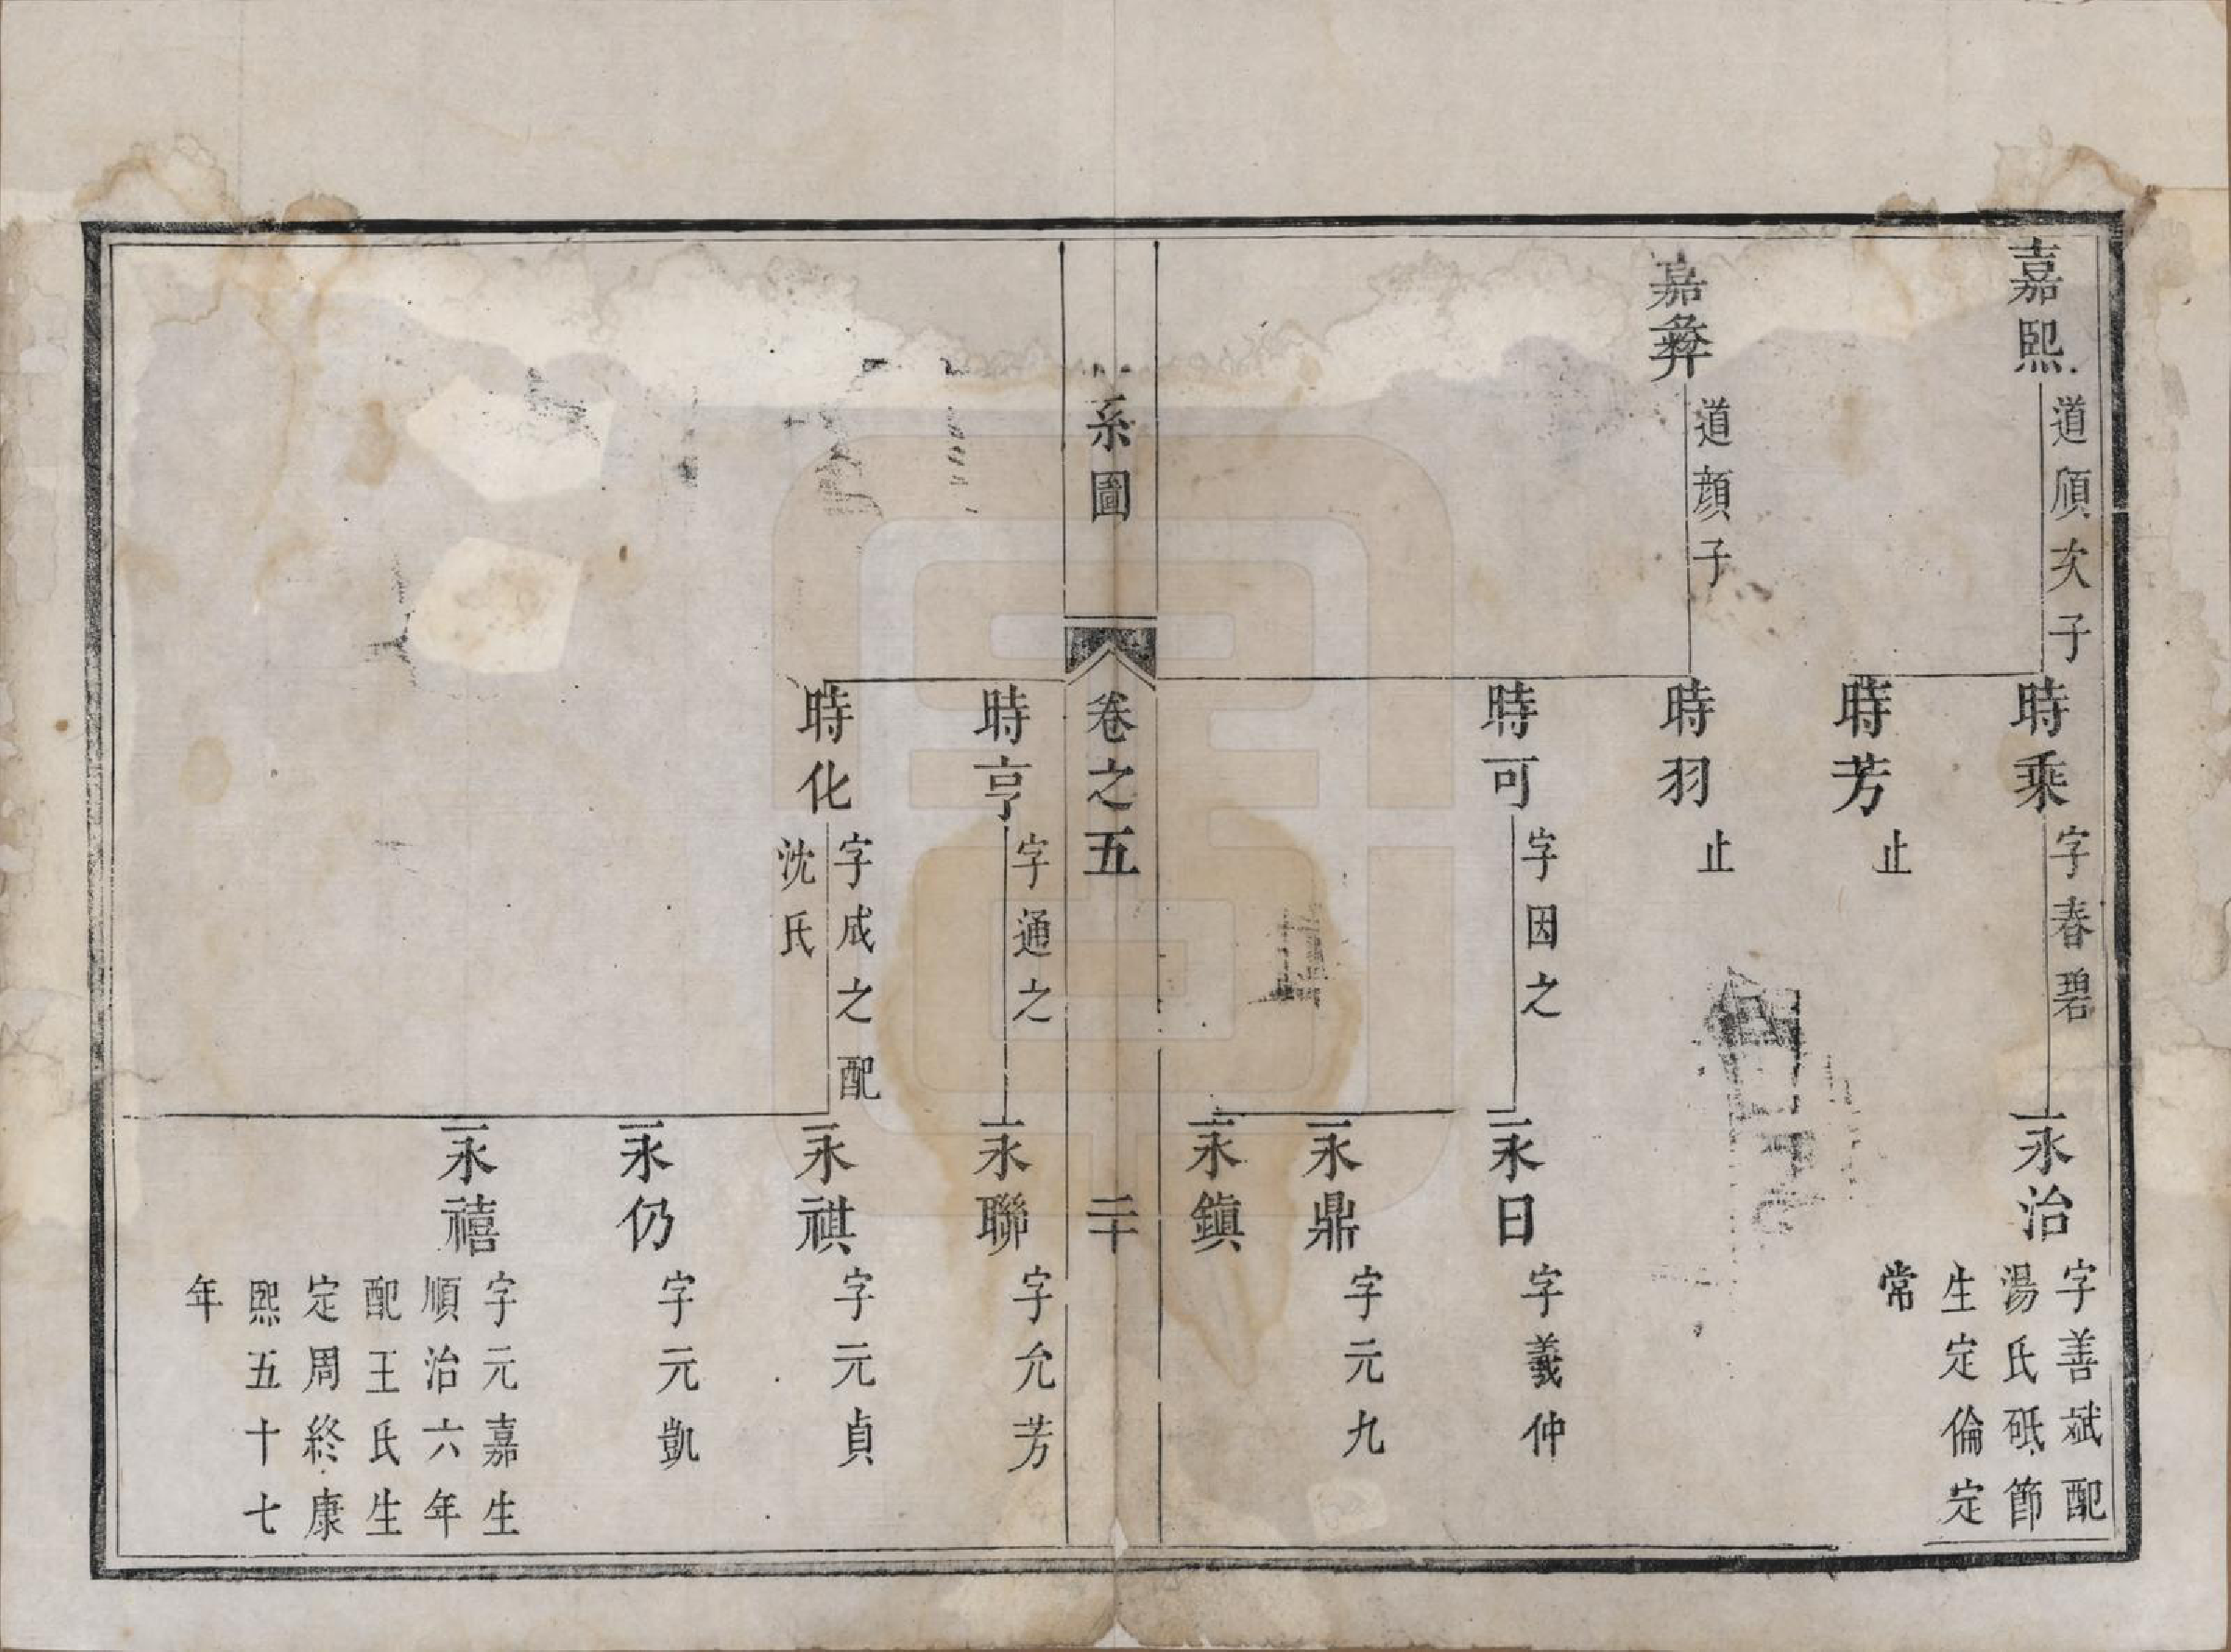 嘉熙
道頎次子
時乘
字春碧
永治
字善斌配
湯氏砥節
生定倫定
常
時芳
止
嘉彜
道顏子
時羽
止
時可
字因之
永日
字羲仲
永鼎
字元九
永鎮
系圖
卷之五
二十
時亨
字通之
永聯
字允芳
時化
字成之配
沈氏
永祺
字元貞
永仍
字元凱
永禧
字元嘉生
順治六年
配王氏生
定周終康
熙五十七
年